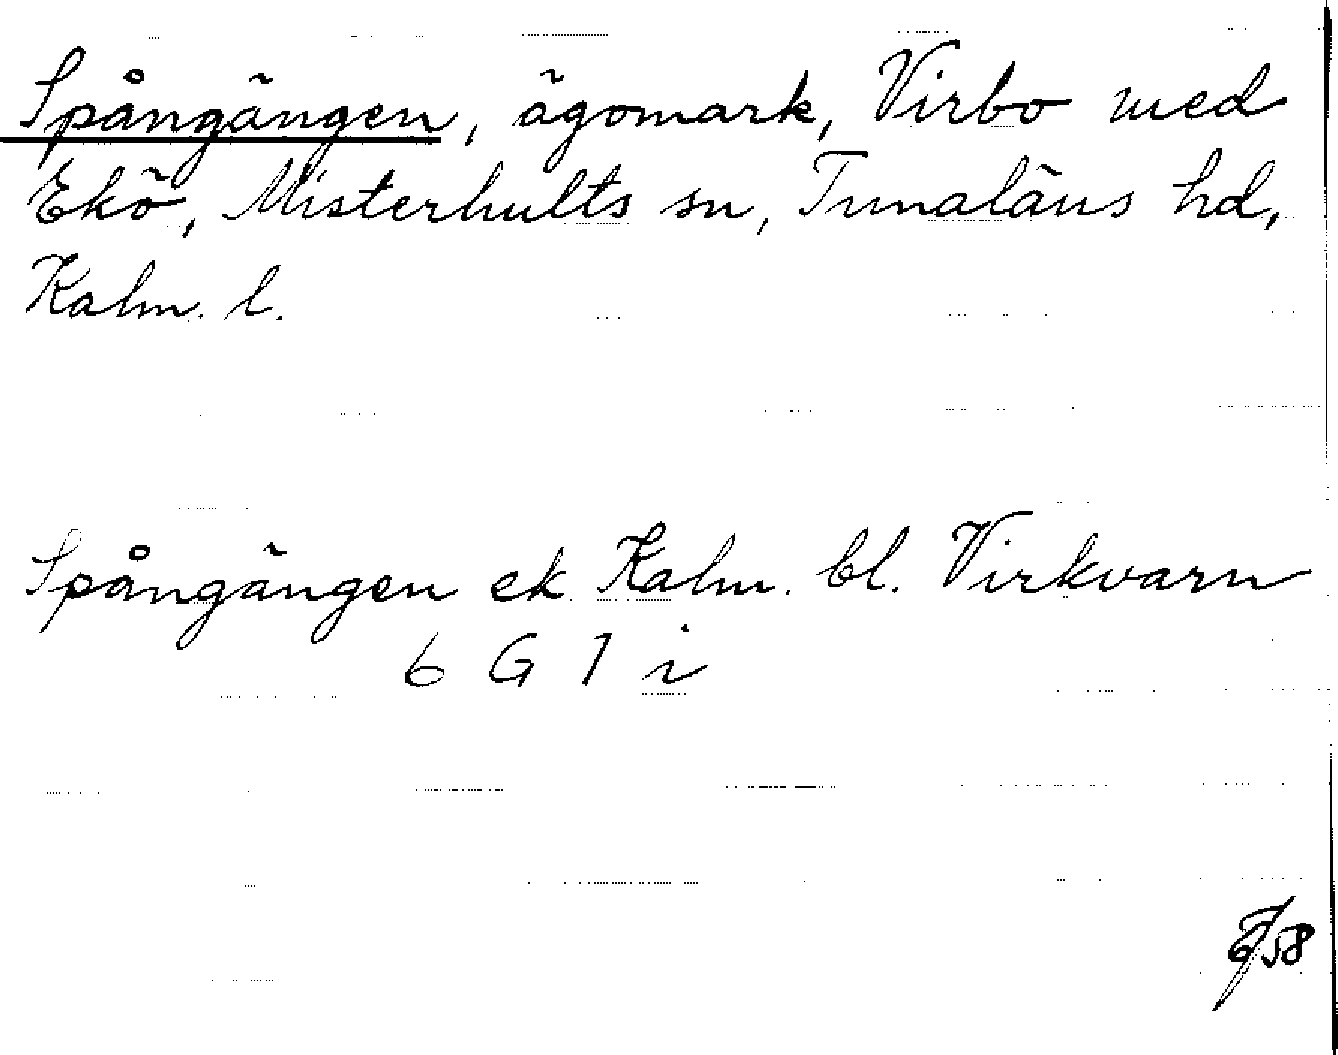 Spångängen, ägomark, Virbo med
Ekö, Misterhults sn, Tunaläns hd,
Kalm. l.
Spångängen ek Kalm. bl. Virkvarn
6 G 7 i
58